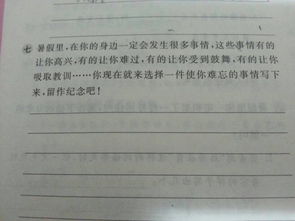 七 暑假里,在你的身边一定会发生很多事情,这些事情有的
让你高兴,有的让你难过,有的让你受到鼓舞,有的让你
吸取教训……你现在就来选择一件使你难忘的事情写下
来,留作纪念吧!